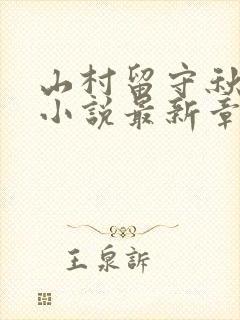 山村留守秋
小説最新章
王泉訴